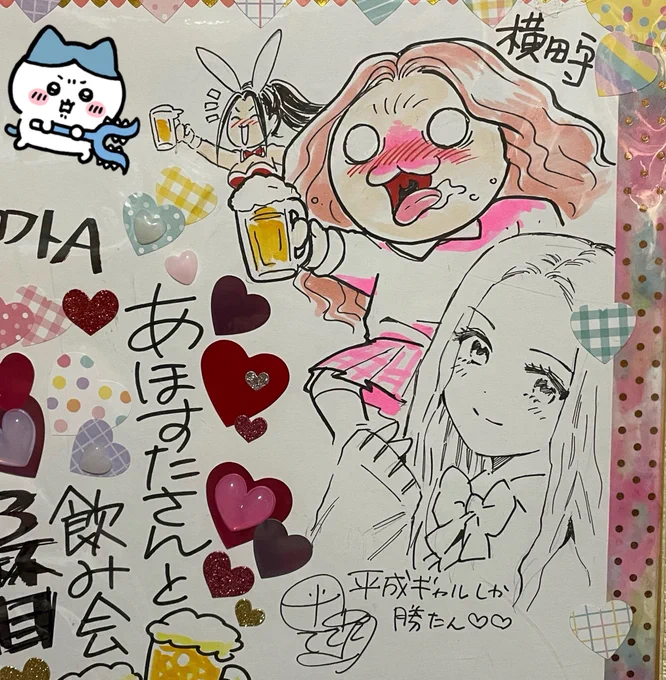 横田守
あほすたさんと
飲み会
3杯目
平成ギャルしか
勝たん♡♡